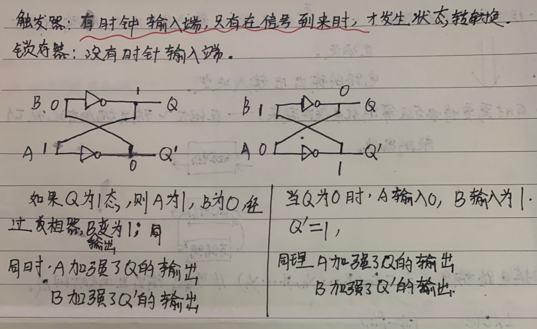 触发器：有时钟输入端，只有在信号到来时，才发生状态转换.
锁存器：没有时针输入端.
B 0 1 Q
A 1 0 Q'
B 1 0 Q
A 0 1 Q'
如果Q为1态，则A为1，B为0，经
过反相器，B变为1；同
输出
同时·A加强了Q的输出
B加强了Q'的输出
当Q为0时·A输入0，B输入为1.
Q'=1，
同理 A加强了Q的输出
B加强了Q'的输出.